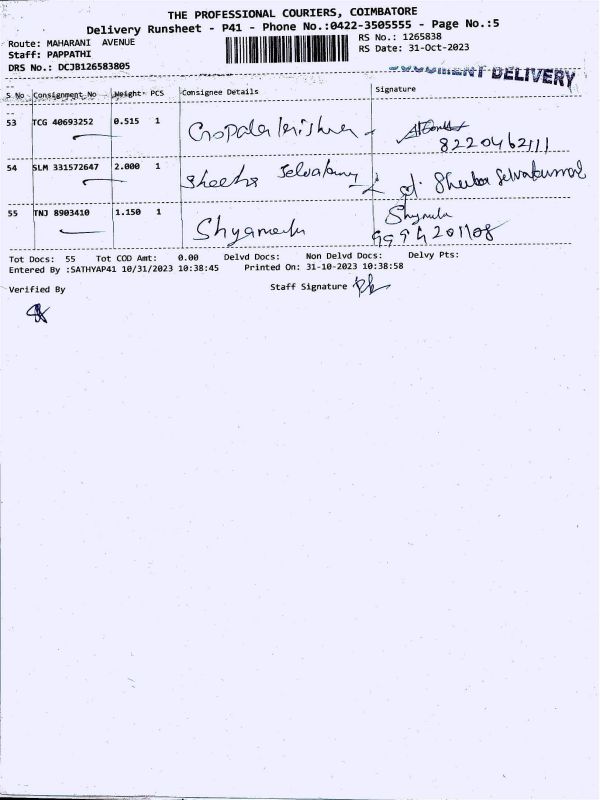 THE PROFESSIONAL COURIERS, COIMBATORE
Delivery Runsheet - P41 - Phone No.:0422-3505555 - Page No.:5
Route: MAHARANI AVENUE
RS No.: 1265838
Staff: PAPPATHI
RS Date: 31-Oct-2023
DRS No.: DCJB126583805
DOCUMENT DELIVERY
S No Consignment No Weight PCS Consignee Details Signature
53 TCG 40693252 0.515 1 Gopalakrishnan
8220462111
54 SLM 331572647 2.000 1 Sheeba Selvakumar Sheeba Selvakumar
55 TNJ 8903410 1.150 1 Shyamala Shymala
9994201108
Tot Docs: 55 Tot COD Amt: 0.00 Delvd Docs: Non Delvd Docs: Delvy Pts:
Entered By :SATHYAP41 10/31/2023 10:38:45 Printed On: 31-10-2023 10:38:58
Verified By Staff Signature